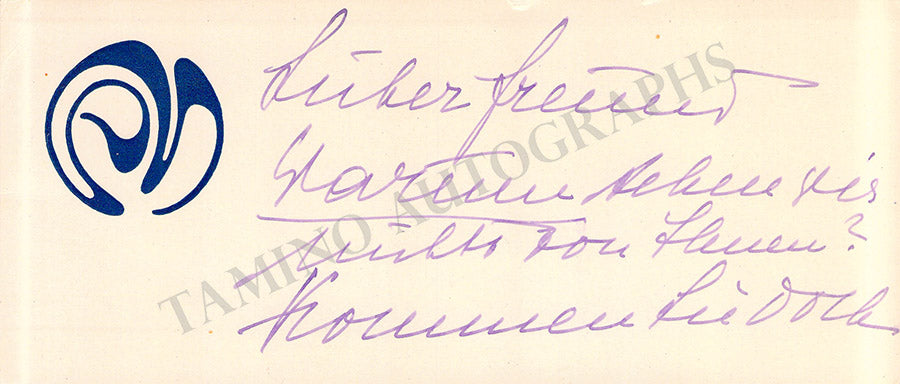 Lieber Freund
Warum sehen wir
nichts von Ihnen?
Kommen Sie doch
TAMINO AUTOGRAPHS